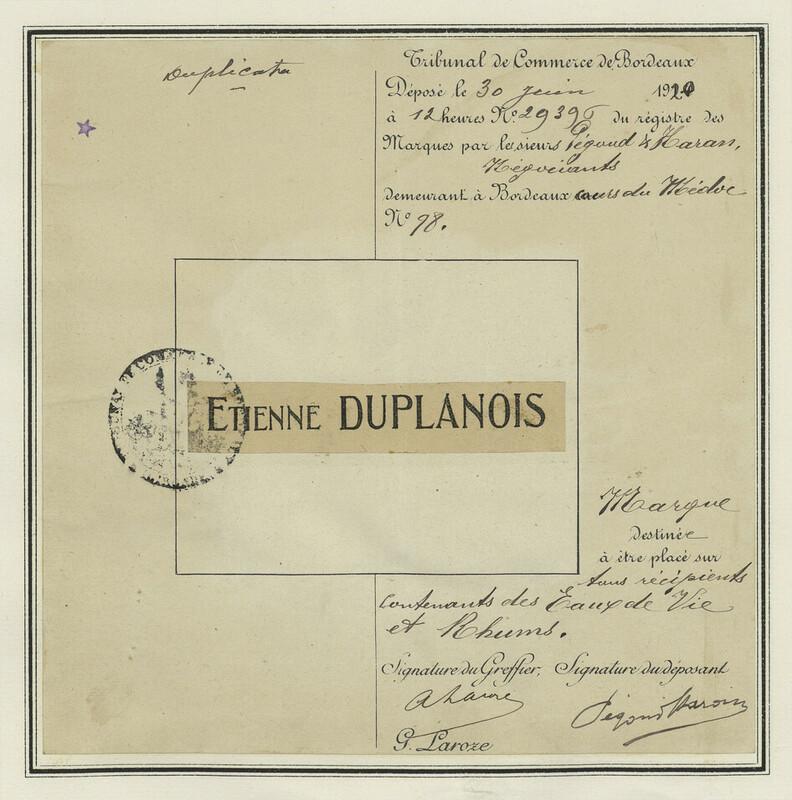 Duplicata
Tribunal de Commerce de Bordeaux
Déposé le 30 juin 1920
à 12 heures No. 29396 du régistre des
Marques par les sieurs Pégoud & Haran,
Négociants
demeurant à Bordeaux cours du Médoc
No 98.
ETIENNE DUPLANOIS
Marque
destinée
à être placé sur
tous récipients
contenants des Eaux de Vie
et Rhums.
Signature du Greffier, Signature du déposant
G. Laroze